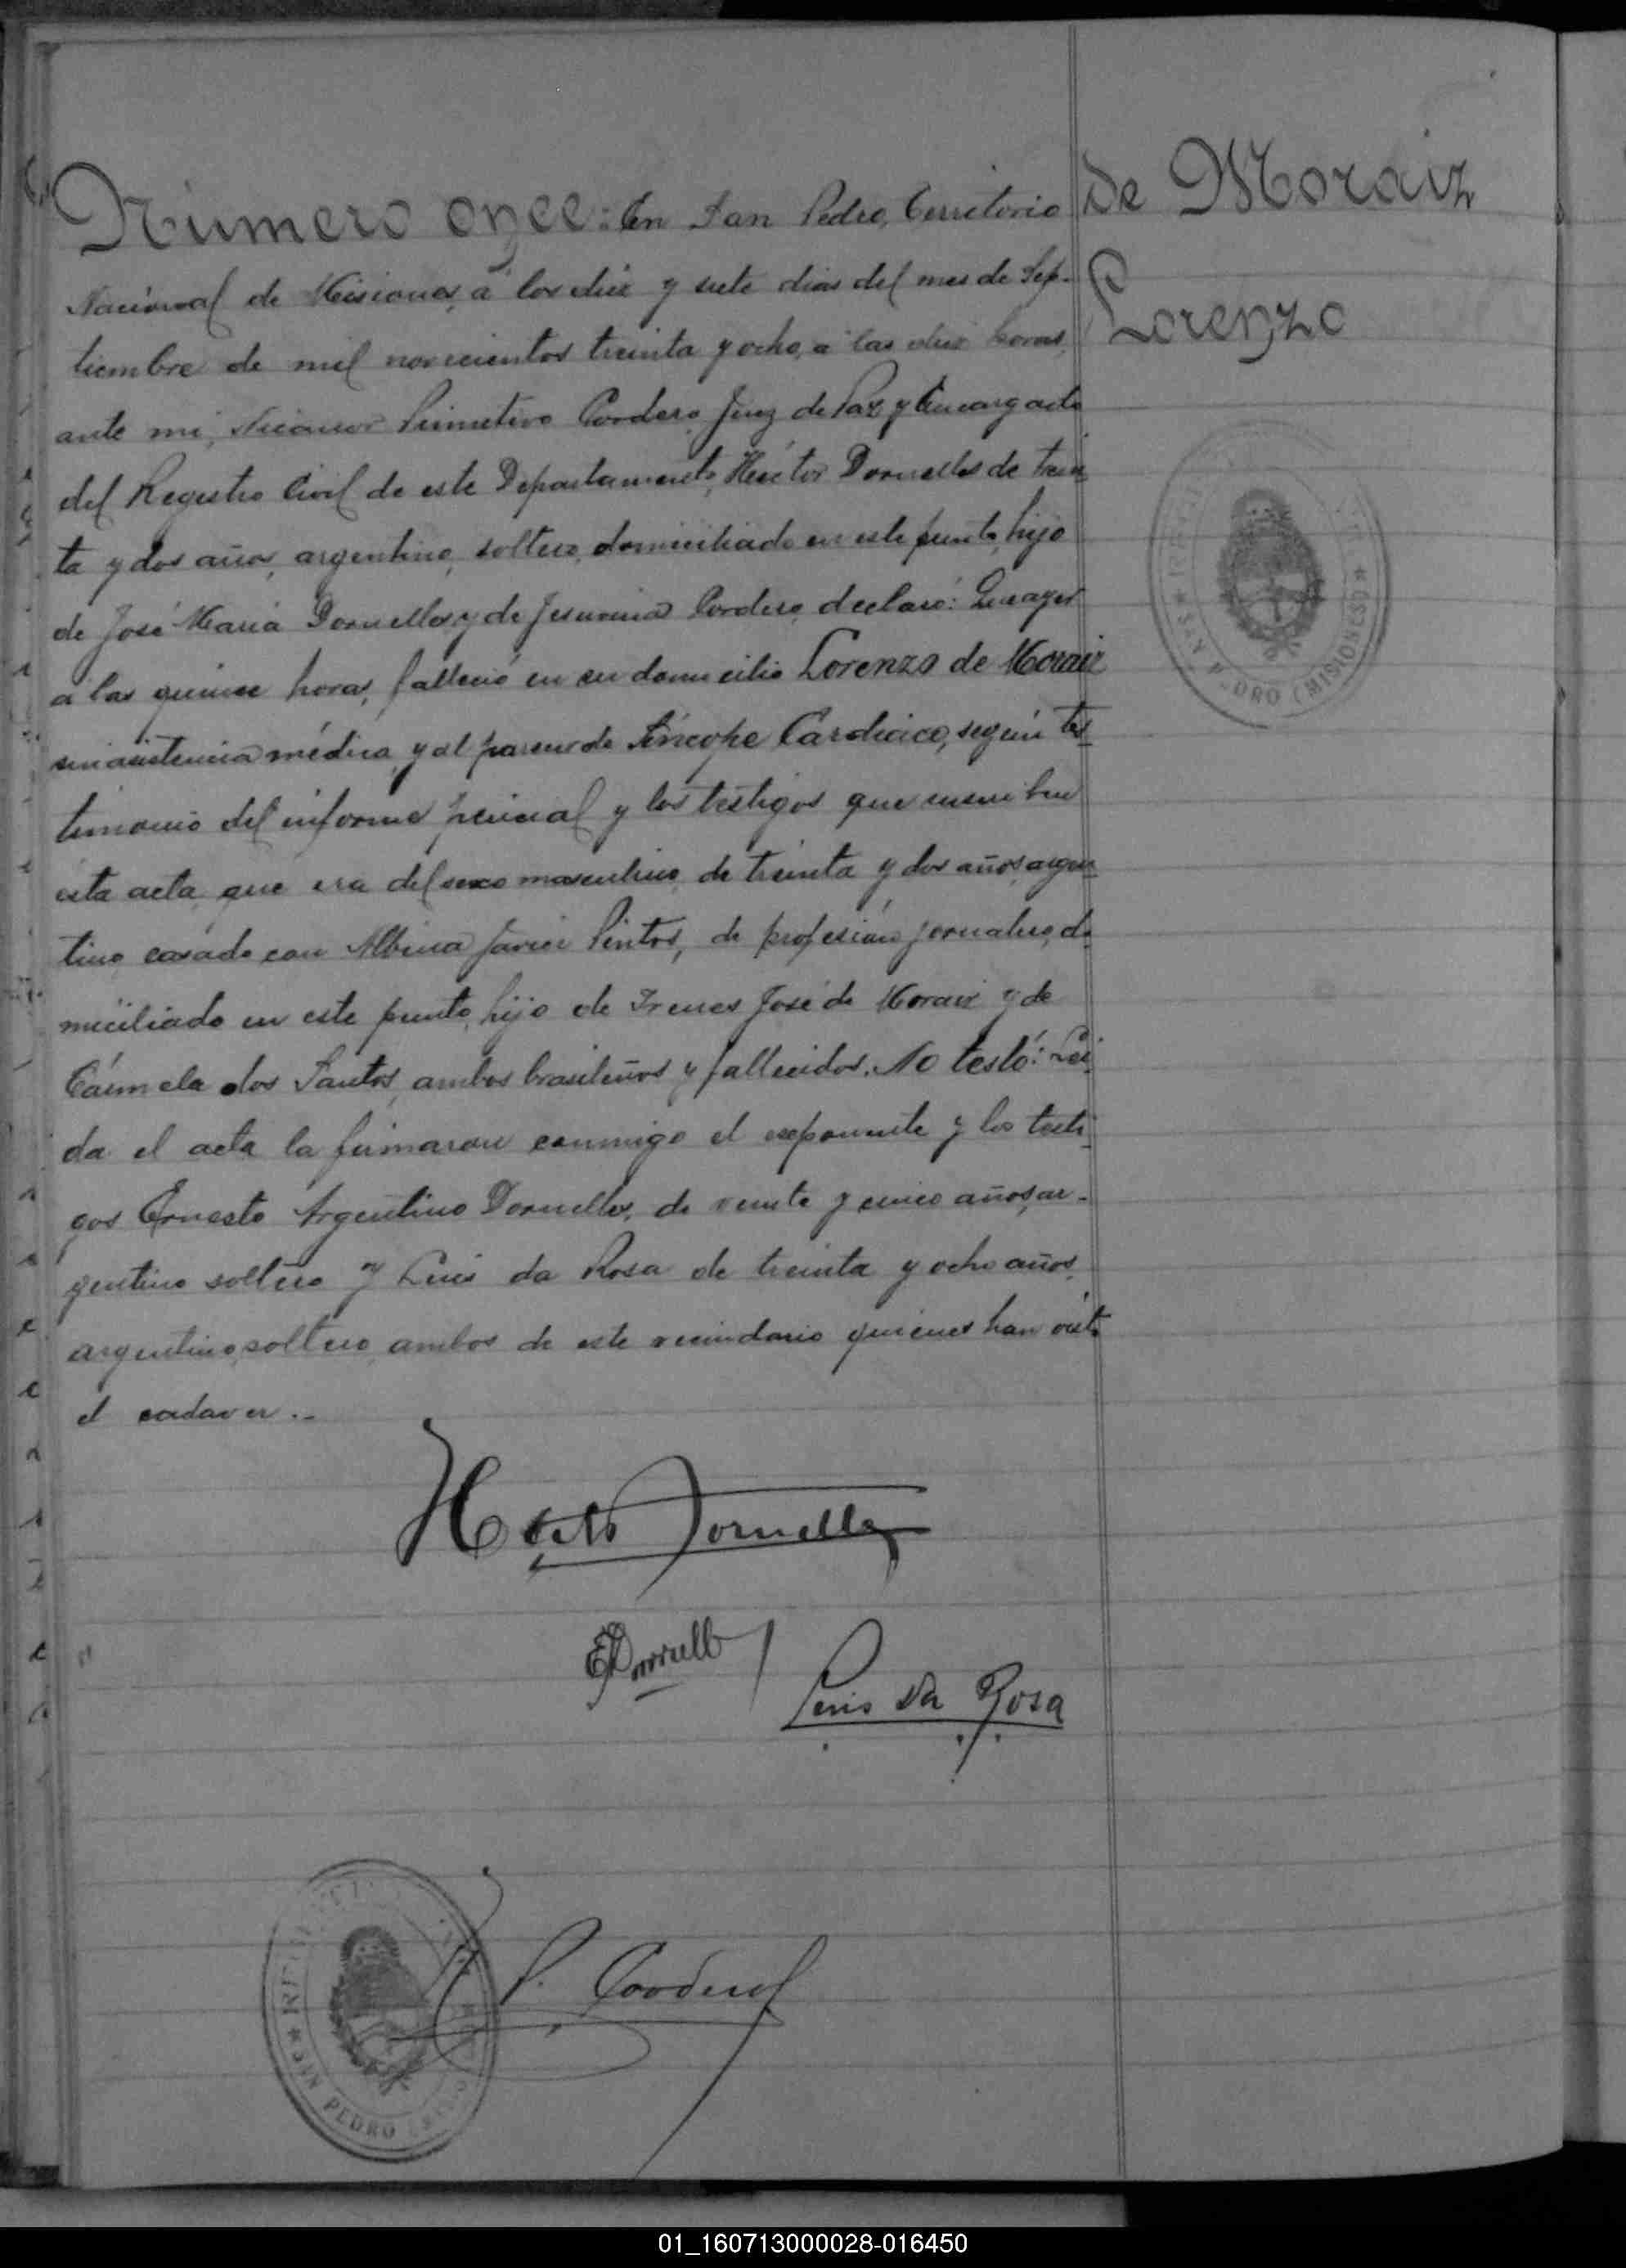 Número once: En San Pedro, Territorio
Nacional de Misiones, a los diez y siete dias del mes de Sep-
tiembre de mil novecientos treinta y ocho, a las diez horas,
ante mi, Nicanor Primitivo Cordero, Juez de Paz y Encargado
del Registro Civil de este Departamento, Héctor Dornelles de trein
ta y dos años, argentino, soltero, domiciliado en este punto, hijo
de José María Dornelles y de Cordero, declaró: Que ayer
a las quince horas, falleció en su domicilio Lorenzo de Moraiz
sin asistencia médica, y al parecer de Síncope Cardiaco, según tes
timonio del informe pericial y los testigos que suscriben
esta acta, que era del sexo masculino, de treinta y dos años, argen
tino, casado con Albina Pintos, de profesión jornalero, do
miciliado en este punto, hijo de Irenes José de Moraiz y de
Cármela dos Santos, ambos brasileños y fallecidos. No testó: Leí
da el acta la firmaron conmigo el exponente y los testi
gos Ernesto Argentino Dornelles, de veinte y cinco años, ar-
gentino soltero y Luis da Rosa de treinta y ocho años,
argentino, soltero, ambos de este vecindario quienes han visto
el cadaver.-
de Moraiz
Lorenzo
SAN PEDRO (MISIONES)
Hector Dornelles
E Dornelles
Luis da Rosa
N. P. Cordero
SAN PEDRO
01_160713000028-016450